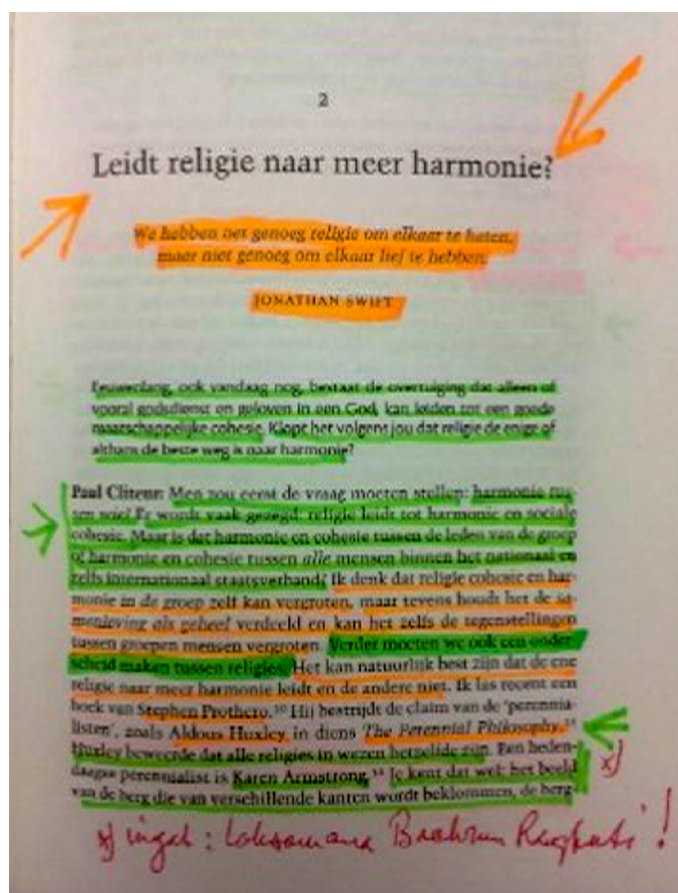 2
Leidt religie naar meer harmonie?
We hebben net genoeg religie om elkaar te haten,
maar niet genoeg om elkaar lief te hebben.
JONATHAN SWIFT
Eeuwenlang, ook vandaag nog, bestaat de overtuiging dat alleen of
vooral godsdienst en geloven in een God, kan leiden tot een goede
maatschappelijke cohesie. Klopt het volgens jou dat religie de enige of
althans de beste weg is naar harmonie?
Paul Cliteur: Men zou eerst de vraag moeten stellen: harmonie tus-
sen wie? Er wordt vaak gezegd: religie leidt tot harmonie en sociale
cohesie. Maar is dat harmonie en cohesie tussen de leden van de groep
of harmonie en cohesie tussen alle mensen binnen het nationaal en
zelfs internationaal staatsverband? Ik denk dat religie cohesie en har-
monie in de groep zelf kan vergroten, maar tevens houdt het de sa-
menleving als geheel verdeeld en kan het zelfs de tegenstellingen
tussen groepen mensen vergroten. Verder moeten we ook een onder-
scheid maken tussen religies. Het kan natuurlijk best zijn dat de ene
religie naar meer harmonie leidt en de andere niet. Ik las recent een
boek van Stephen Prothero. Hij bestrijdt de claim van de 'perennia-
listen', zoals Aldous Huxley, in diens The Perennial Philosophy.
Huxley beweerde dat alle religies in wezen hetzelfde zijn. Een heden-
daagse perennialist is Karen Armstrong. Je kent dat wel: het beeld
van de berg die van verschillende kanten wordt beklommen, de berg-
x)
x)